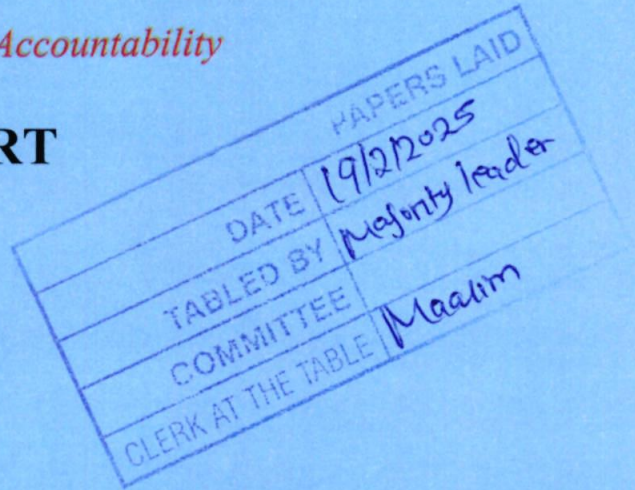 Accountability
RT
PAPERS LAID
DATE 19/2/2025
TABLED BY Majority leader
COMMITTEE
CLERK AT THE TABLE Maalim